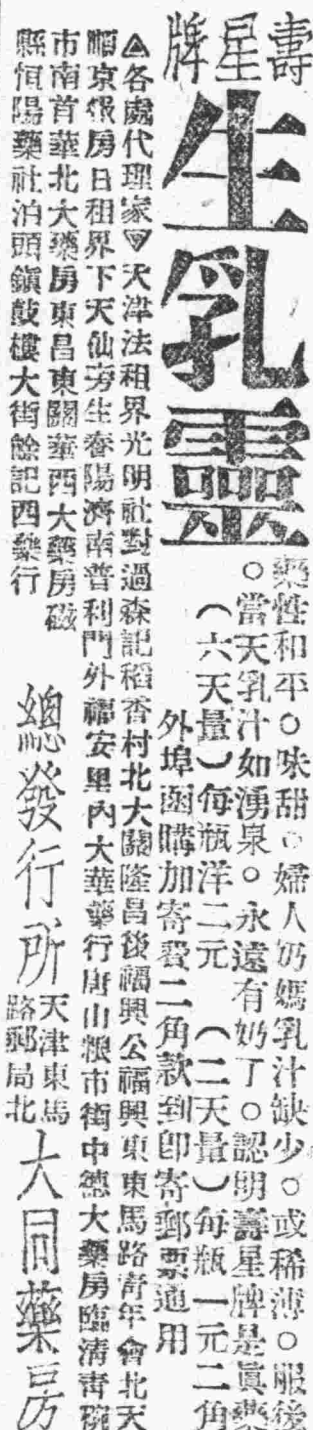 壽星牌
生乳靈
藥性和平。味甜。婦人奶媽乳汁缺少。或稀薄。服後
。當天乳汁如湧泉。永遠有奶了。認明壽星牌是眞藥
（六天量）每瓶洋二元　（二天量）每瓶一元二角
外埠函購加寄費二角款到卽寄郵票通用
▲各處代理家▼天津法租界光明社對過森記稻香村北大關隆昌後福興公福興東東馬路靑年會北天
順京報房日租界下天仙旁生春陽濟南普利門外福安里內大華藥行唐山糧市街中德大藥房臨淸靑碗
市南首華北大藥房東昌東關華西大藥房磁
縣恒陽藥社泊頭鎭鼓樓大街餘記西藥行
總發行所
天津東馬
路郵局北
大同藥房